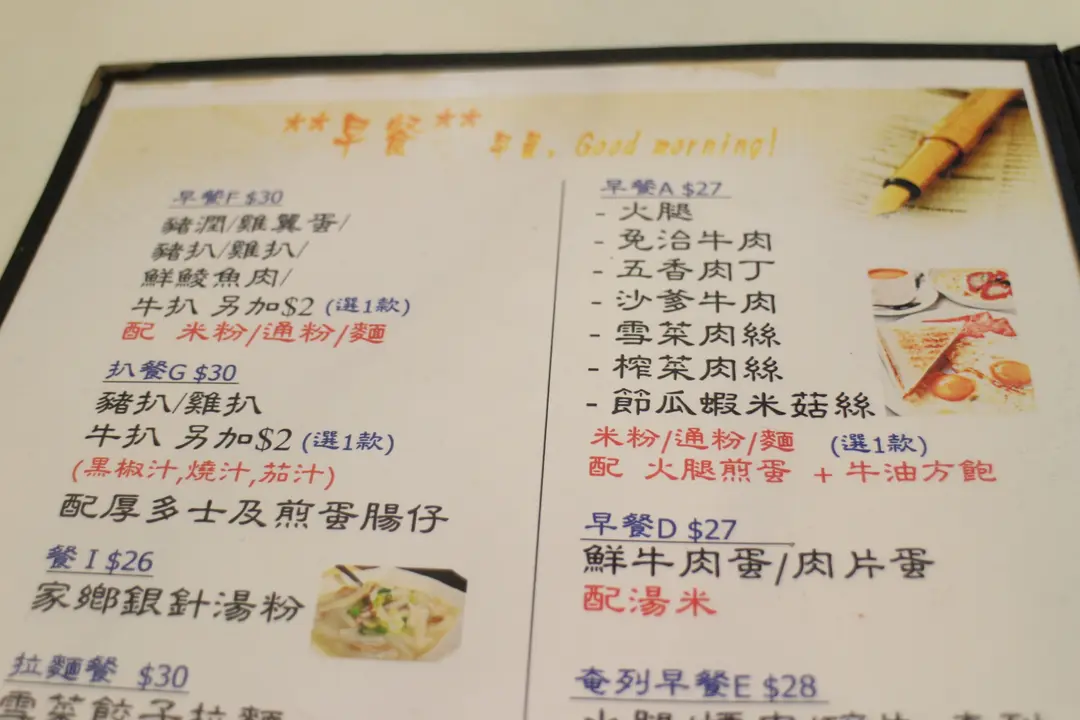 **早餐** 早晨, Good morning!
早餐F $30
豬潤/雞翼蛋/
豬扒/雞扒/
鮮鯪魚肉/
牛扒 另加$2 (選1款)
配 米粉/通粉/麵
扒餐G $30
豬扒/雞扒
牛扒 另加$2 (選1款)
(黑椒汁,燒汁,茄汁)
配厚多士及煎蛋腸仔
餐 I $26
家鄉銀針湯粉
拉麵餐 $30
雪菜餃子拉麵
早餐A $27
- 火腿
- 免治牛肉
- 五香肉丁
- 沙爹牛肉
- 雪菜肉絲
- 榨菜肉絲
- 節瓜蝦米菇絲
米粉/通粉/麵 (選1款)
配 火腿煎蛋 + 牛油方飽
早餐D $27
鮮牛肉蛋/肉片蛋
配湯米
奄列早餐E $28